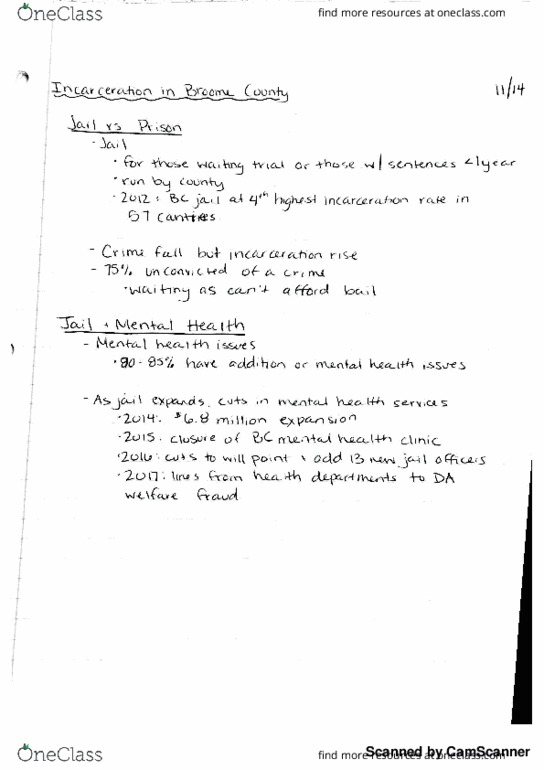 OneClass
find more resources at oneclass.com
Incarceration in Broome County 11/14
Jail vs Prison
- Jail
• for those waiting trial or those w/ sentences <1year
• run by county
• 2012: BC jail at 4th highest incarceration rate in
57 canties
- Crime fall but incarceration rise
- 75% unconvicted of a crime
• waiting as can't afford bail
Jail + Mental Health
- Mental health issues
• 80-85% have addition or mental health issues
- As jail expands, cuts in mental health services
• 2014: $6.8 million expansion
• 2015: closure of BC mental health clinic
• 2016: cuts to will point + add 13 new jail officers
• 2017: lines from health departments to DA
welfare fraud
OneClass
find more resources at oneclass.com
Scanned by CamScanner